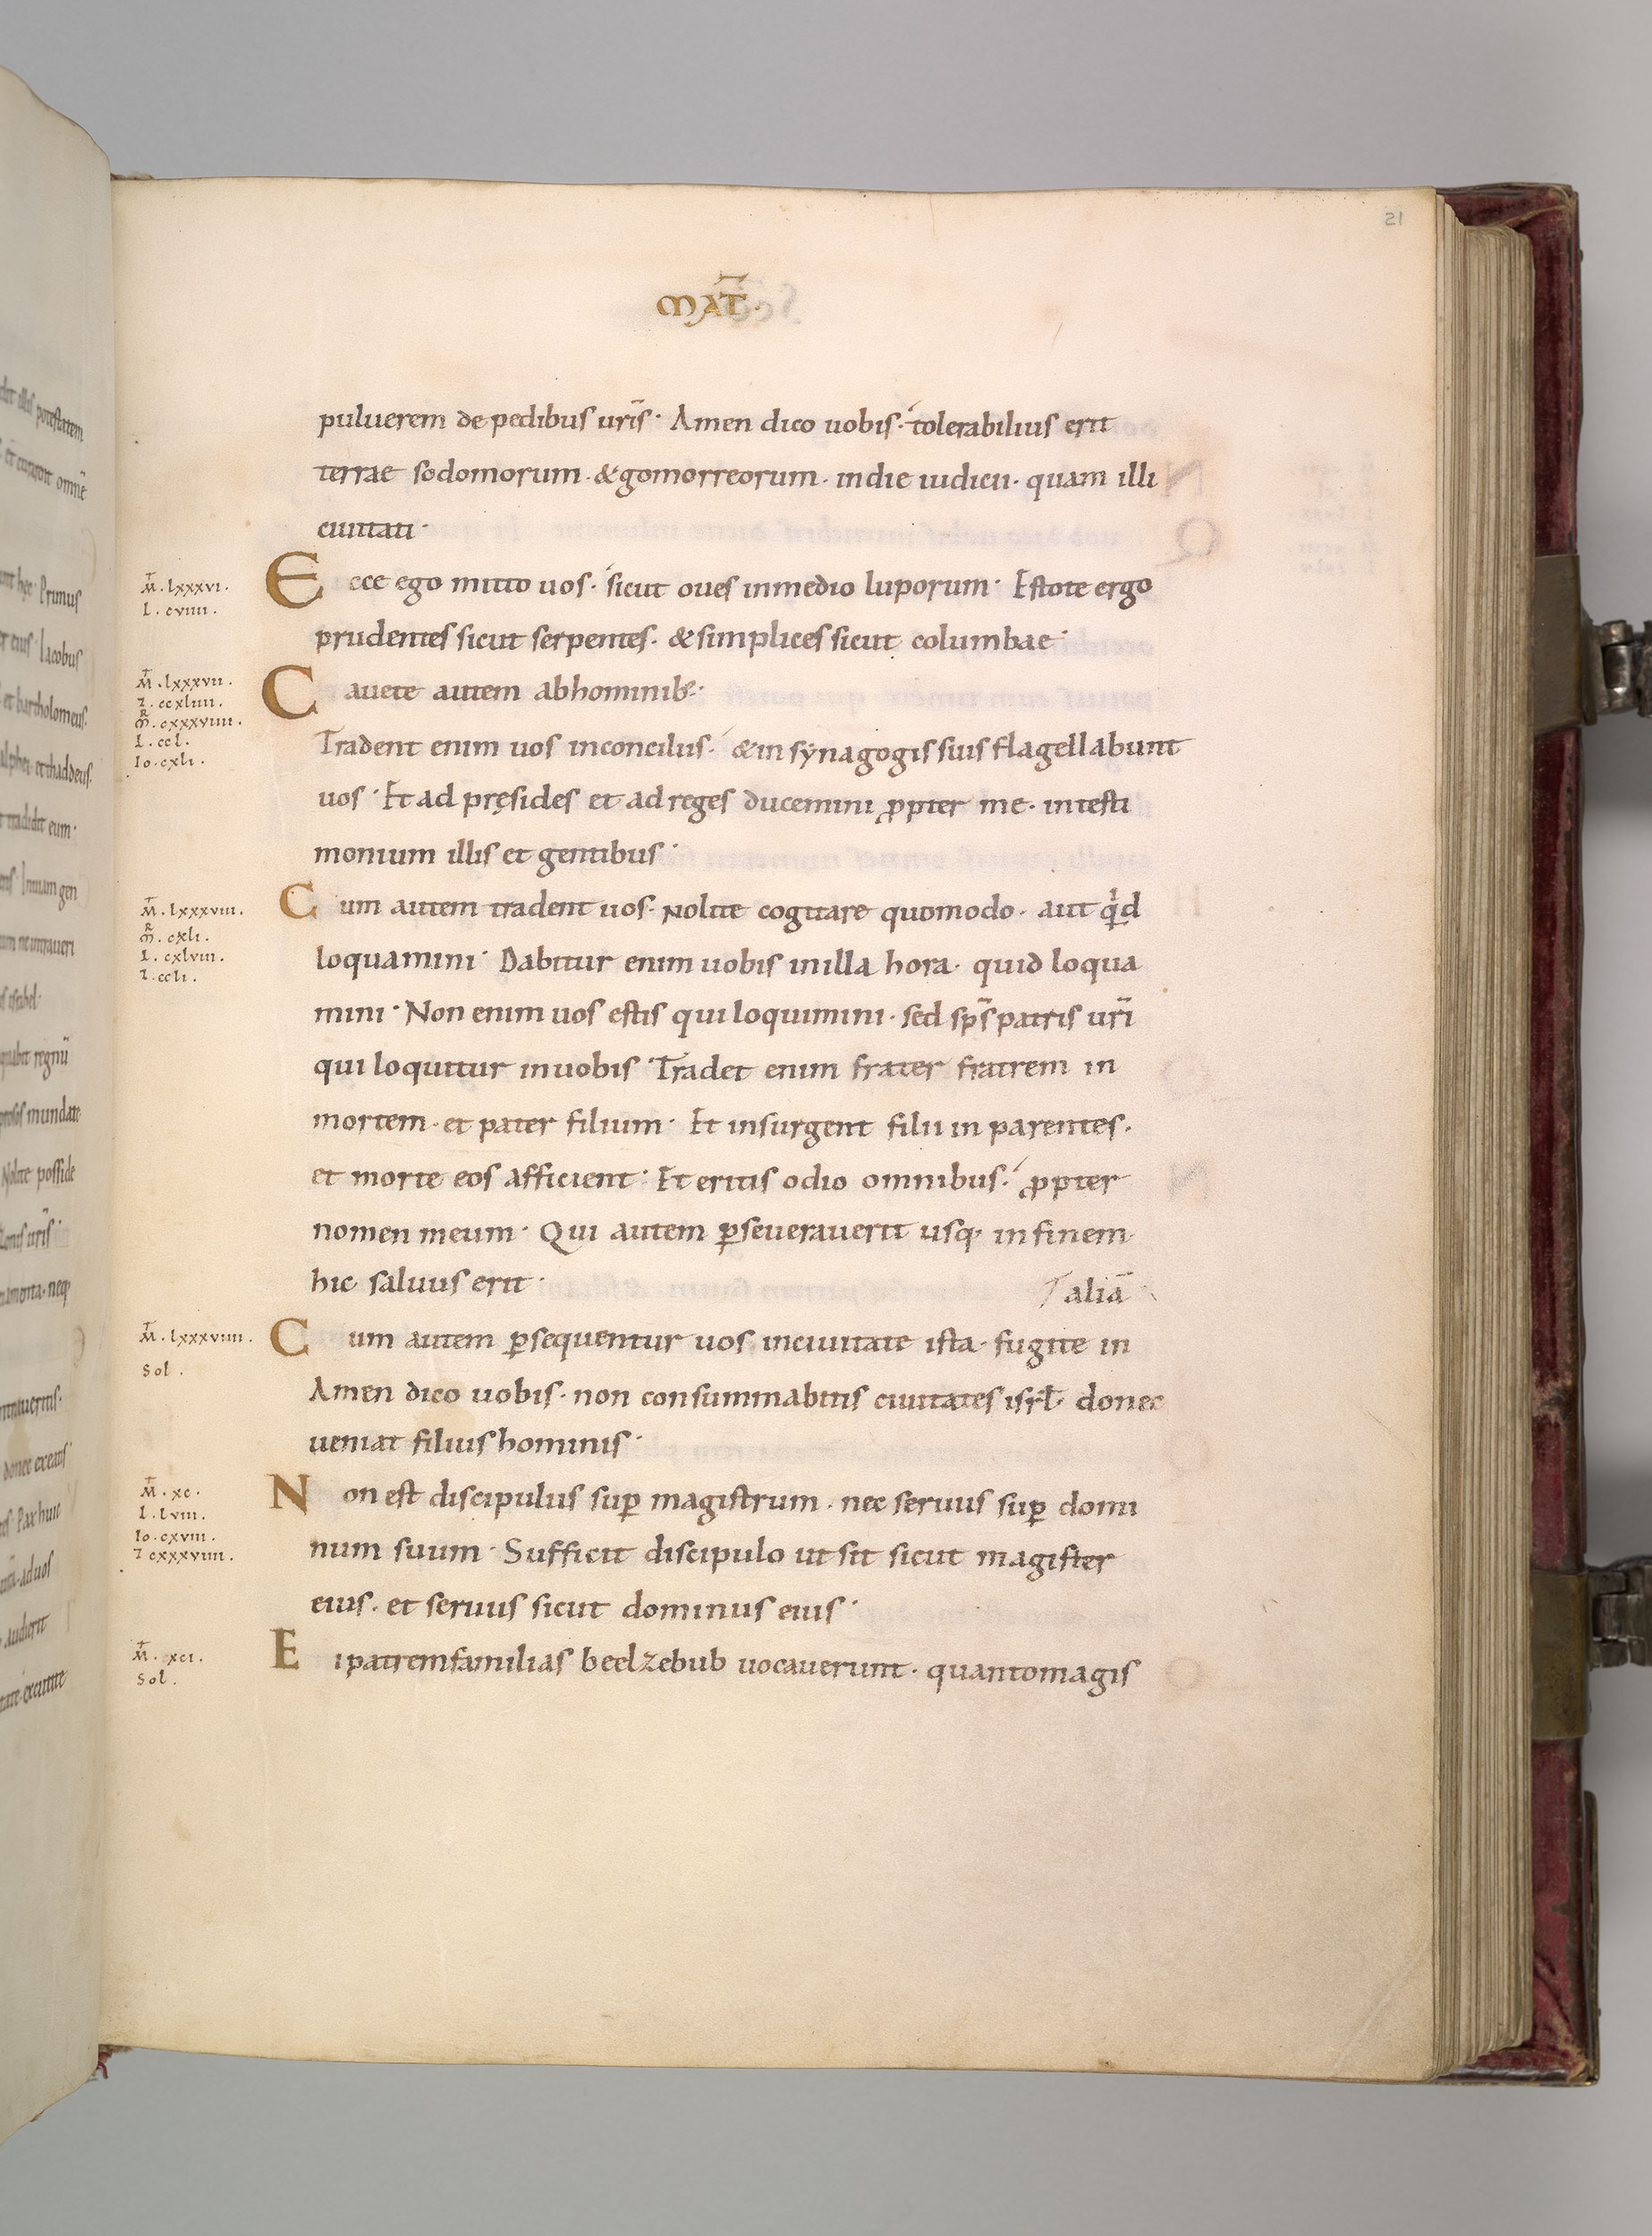 21
MAT̄.
puluerem de pedibus ur̄is· Amen dico uobis· tolerabilius erit
terrae sodomorum · & gomorreorum · in die iudicii · quam illi
ciuitati ·
Ecce ego mitto uos · sicut oues in medio luporum · Estote ergo
prudentes sicut serpentes · & simplices sicut columbae ·
Cauete autem ab hominib; ·
Tradent enim uos in conciliis · & in synagogis suis flagellabunt
uos · Et ad pręsides et ad reges ducemini ꝓpter me · in testi
monium illis et gentibus ·
Cum autem tradent uos · Nolite cogitare quomodo · aut qͥd
loquamini · Dabitur enim uobis in illa hora · quid loqua
mini · Non enim uos estis qui loquimini · sed sp̄s patris ur̄i
qui loquitur in uobis · Tradet enim frater fratrem in
mortem · et pater filium · Et insurgent filii in parentes ·
et morte eos afficient · Et eritis odio omnibus · ꝓpter
nomen meum · Qui autem ꝑseuerauerit usq· in finem
hic saluus erit ·
aliā
Cum autem ꝑsequentur uos in ciuitate ista · fugite in
Amen dico uobis · non consummabitis ciuitates isrł · donec
ueniat filius hominis ·
Non est discipulus suꝑ magistrum · nec seruus suꝑ domi
num suum · Sufficit discipulo ut sit sicut magister
eius · et seruus sicut dominus eius ·
Ei patremfamilias beelzebub uocauerunt · quanto magis
M̄ · lxxxvi ·
l · cviiii ·
M̄ · lxxxvii ·
l · ccxliiii ·
m̄ · cxxxviiii ·
l · ccl ·
Io · cxli ·
M̄ · lxxxviii ·
m̄ · cxli ·
l · cxlviii ·
l · ccli ·
M̄ · lxxxviiii ·
Sol ·
M̄ · xc ·
l · lviii ·
Io · cxviii ·
l cxxxviiii ·
M̄ · xci ·
Sol ·